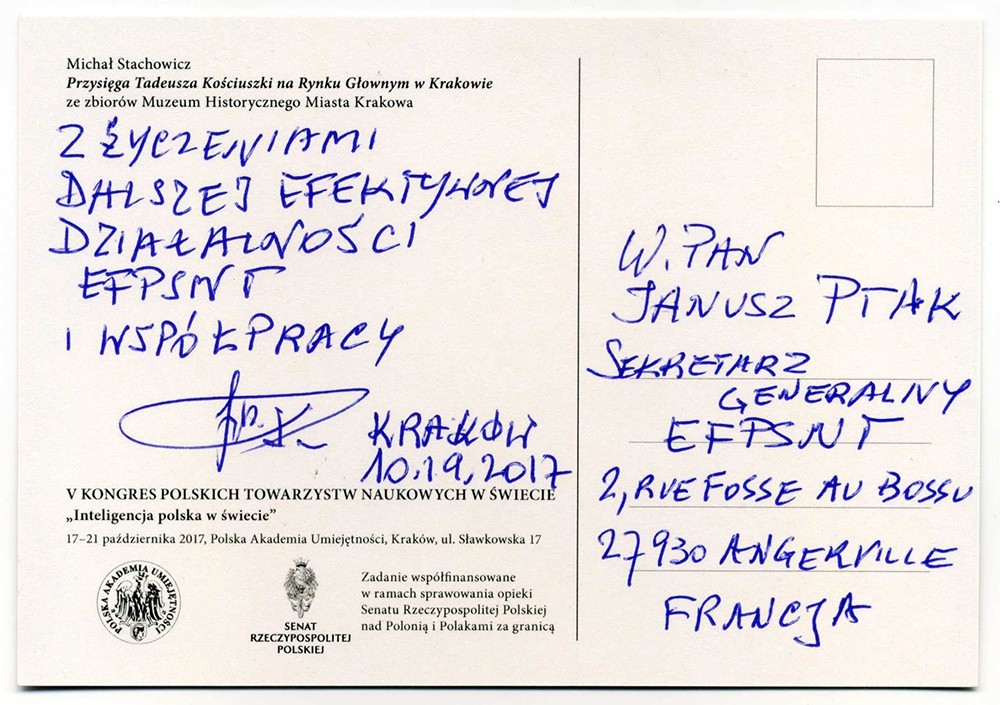 Michał Stachowicz
Przysięga Tadeusza Kościuszki na Rynku Głownym w Krakowie
ze zbiorów Muzeum Historycznego Miasta Krakowa
Z ŻYCZENIAMI
DALSZEJ EFEKTYWNEJ
DZIAŁALNOŚCI
EFPSNT
I WSPÓŁPRACY
KRAKÓW
10.19.2017
V KONGRES POLSKICH TOWARZYSTW NAUKOWYCH W ŚWIECIE
„Inteligencja polska w świecie”
17–21 października 2017, Polska Akademia Umiejętności, Kraków, ul. Sławkowska 17
POLSKA AKADEMIA UMIEJĘTNOŚCI
SENAT
RZECZYPOSPOLITEJ
POLSKIEJ
Zadanie współfinansowane
w ramach sprawowania opieki
Senatu Rzeczypospolitej Polskiej
nad Polonią i Polakami za granicą
W. PAN
JANUSZ PTAK
SEKRETARZ
GENERALNY
EFPSNT
2, RUE FOSSE AU BOSSU
27930 ANGERVILLE
FRANCJA